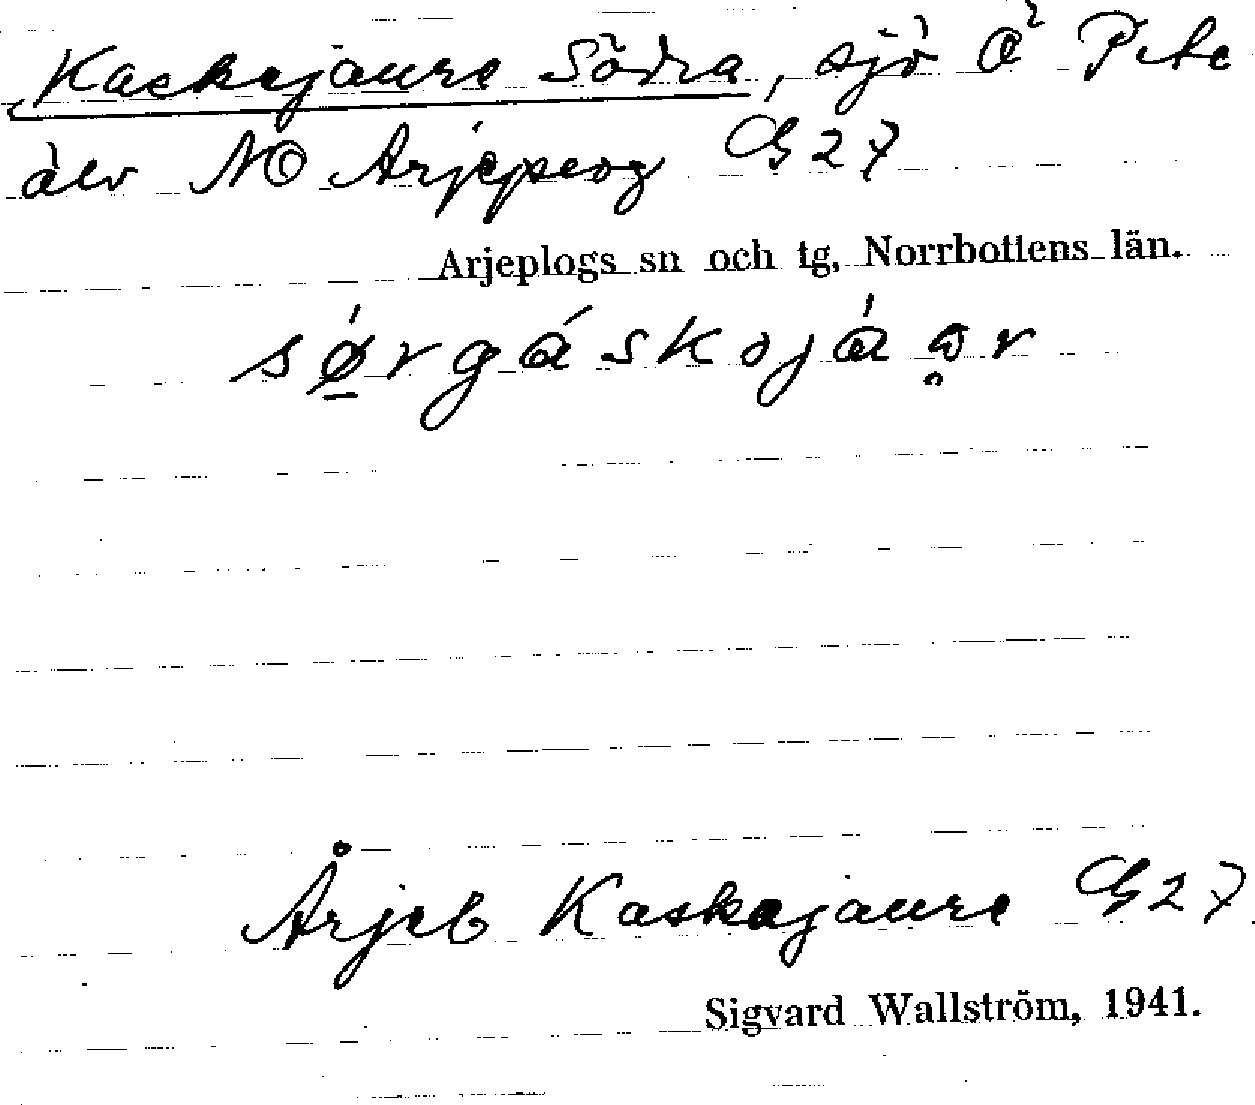 Kaskajaure Södra, sjö Ö Pite
älv NO Arjeplog G27
Arjeplogs sn och tg, Norrbottens län.
Årjeb Kaskajaure G27
Sigvard Wallström, 1941.